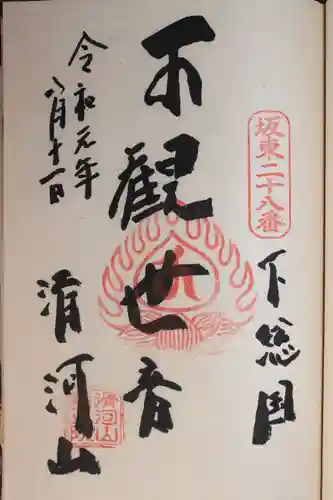 坂東二十八番
下総国
不観世音
滑河山
令和元年
八月十一日
滑河山